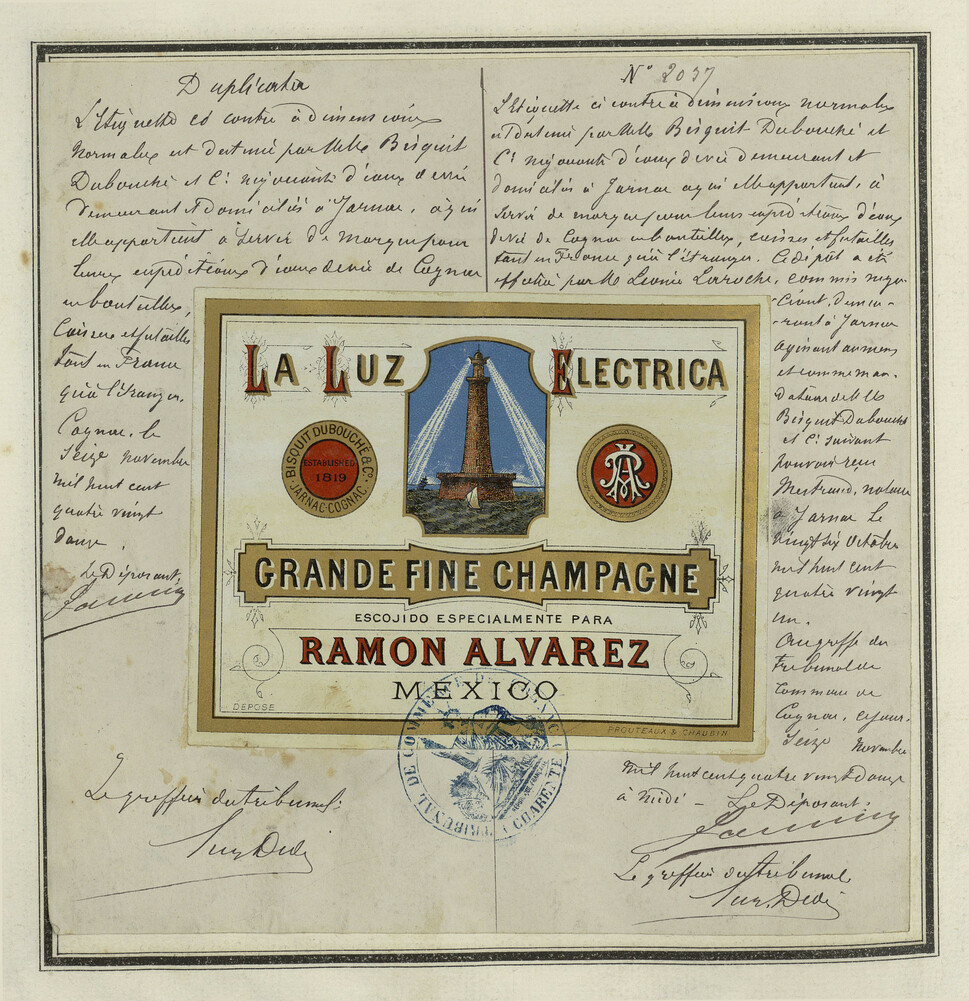 Duplicata
L'Etiquette ci contre à dimensions
normales est destiné par MMrs Bisquit
Dubouché et Cie négociants d'eaux de vie
demeurant et domiciliés à Jarnac, à qui
elle appartient à servir de marque pour
leurs expéditions d'eaux de vie de Cognac
en bouteilles,
Caisses et futailles
tant en France
qu'à l'Etranger.
Cognac, le
Seize novembre
mil huit cent
quatre vingt
douze.
Le Déposant,
Le greffier du tribunal:
N° 2037
L'Etiquette ci contre à dimensions normales
est destiné par MMrs Bisquit Dubouché et
Cie négociants d'eaux de vie demeurant et
domiciliés à Jarnac à qui elle appartient, à
servir de marque pour leurs expéditions d'eaux
de vie de Cognac en bouteilles, caisses et futailles
tant en France qu'à l'étranger. Ce dépôt a été
effectué par M Léonce Laroche, commis négo-
ciant, demeu-
rant à Jarnac
agissant au nom
et comme man-
dataire de MM
Bisquit Dubouché
et Cie suivant
pouvoir reçu
Mestraud, notaire
à Jarnac le
vingt six Octobre
mil huit cent
quatre vingt
un.
Au greffe du
Tribunal de
Commerce de
Cognac, ce jour
Seize Novembre
mil huit cent quatre vingt douze
à midi — Le Déposant.
Le greffier du tribunal
LA LUZ ELECTRICA
BISQUIT DUBOUCHÉ & Co.
ESTABLISHED
1819
JARNAC-COGNAC
GRANDE FINE CHAMPAGNE
ESCOJIDO ESPECIALMENTE PARA
RAMON ALVAREZ
MEXICO
DEPOSE
PROUTEAUX & CHAUBIN
TRIBUNAL DE COMMERCE DE COGNAC (CHARENTE)